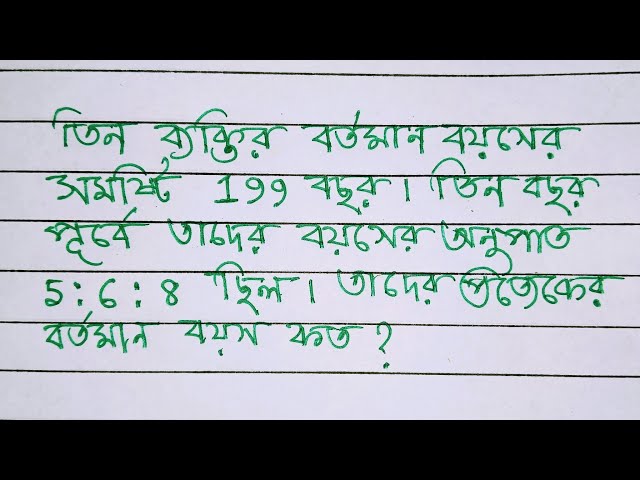 তিন ব্যক্তির বর্তমান বয়সের
সমষ্টি 199 বছর। তিন বছর
পূর্বে তাদের বয়সের অনুপাত
5:6:8 ছিল। তাদের প্রত্যেকের
বর্তমান বয়স কত?